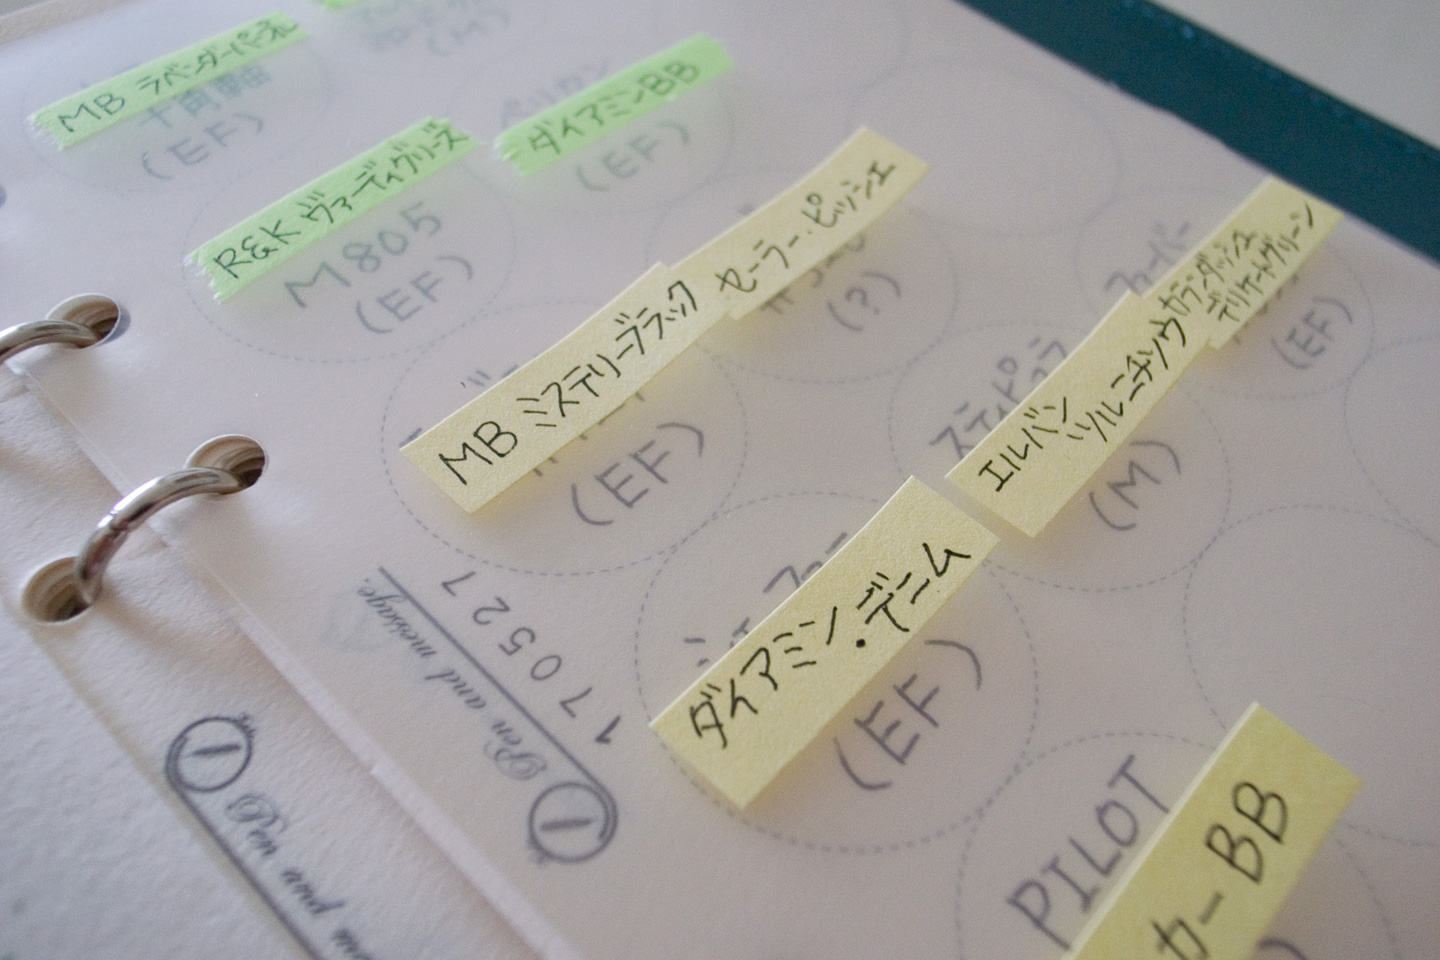 MB ラベンダーパープル
(EF)
(M)
ペリカン
ダイアミンBB
(EF)
R&K ヴァーディグリーズ
M805
(EF)
セーラー・ビッシェ
(?)
MB ミステリーブラック
(EF)
ファーバー
カランダッシュ
デリケートグリーン
(EF)
スティピュラ
エルバン
ソルニチソウ
(M)
ダイアミン・デニム
(EF)
170527
① Pen and message.
① Pen and
PILOT
カーBB